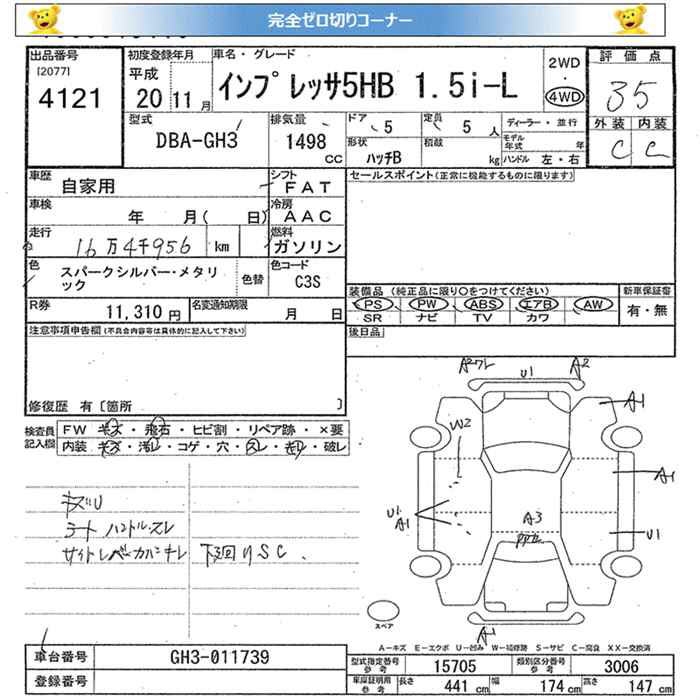 完全ゼロ切りコーナー
出品番号 初度登録年月 車名・グレード 評価点
[2077] 平成 インプレッサ5HB 1.5i-L 2WD ・ 4WD 35
4121 20 11月
型式 排気量 ドア 定員 ディーラー・並行 外装 内装
DBA-GH3 1498 CC 5 5 人 モデル年式 年 C C
形状 ハッチB 積載 kg ハンドル 左・右
車歴 自家用 シフト FAT セールスポイント(正常に機能するものに限ります)
車検 年 月( 日) 冷房 AAC
走行 16万4千956 km 燃料 ガソリン
色 スパークシルバー・メタリック 色替 色コード C3S
装備品 (純正品に限り○をつけてください) 新車保証書
PS PW ABS エアB AW 有・無
SR ナビ TV カワ
R券 11,310 円 名変通知期限 月 日
後日品
注意事項申告欄(不具合内容等は具体的に記入して下さい)
修復歴 有 [箇所 ]
検査員記入欄 FW キズ・飛石・ヒビ割・リペア跡・×要
内装 キズ・汚れ・コゲ・穴・スレ・モリ・破レ
キズU
シート ハンドル・スレ
サイドレバーカバーキレ 下回りSC.
A2ワレ U1 A2
A1
W2
A1
U1 A1
A3
U1
A1
スペア
A-キズ E-エクボ U-凹み W-補修跡 S-サビ C-腐食 XX-交換済
車台番号 GH3-011739
登録番号
型式指定番号 参考 15705 類別区分番号 参考 3006
車庫証明用 参考 長さ 441 cm 幅 174 cm 高さ 147 cm